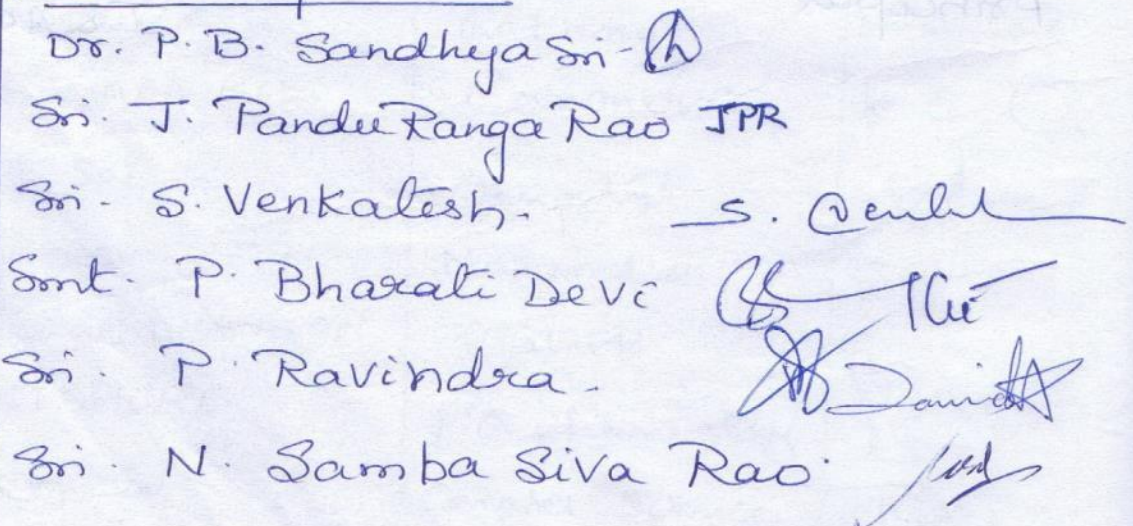 Dr. P. B. Sandhya Sri -
Sri. J. Pandu Ranga Rao JPR
Sri. S. Venkatesh. S.
Smt. P. Bharati Devi
Sri. P. Ravindra.
Sri. N. Samba Siva Rao.